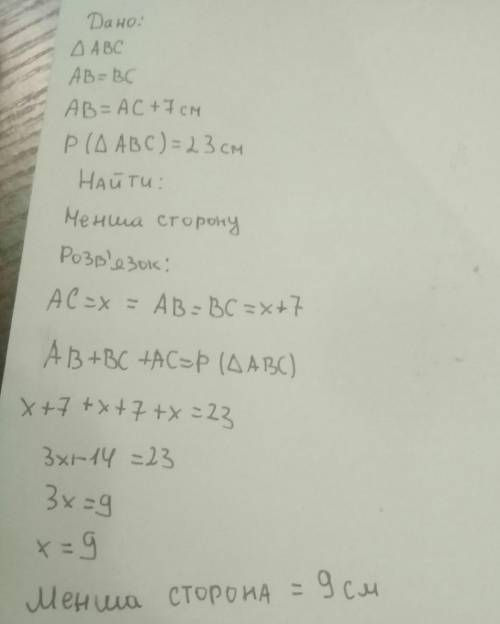 Дано:
△ ABC
AB=BC
AB=AC+7см
P(△ABC)=23см
Найти:
Менша сторону
Розв'язок:
AC=x = AB=BC=x+7
AB+BC+AC=P(△ABC)
x+7+x+7+x=23
3x+14=23
3x=9
x=9
Менша сторона = 9см